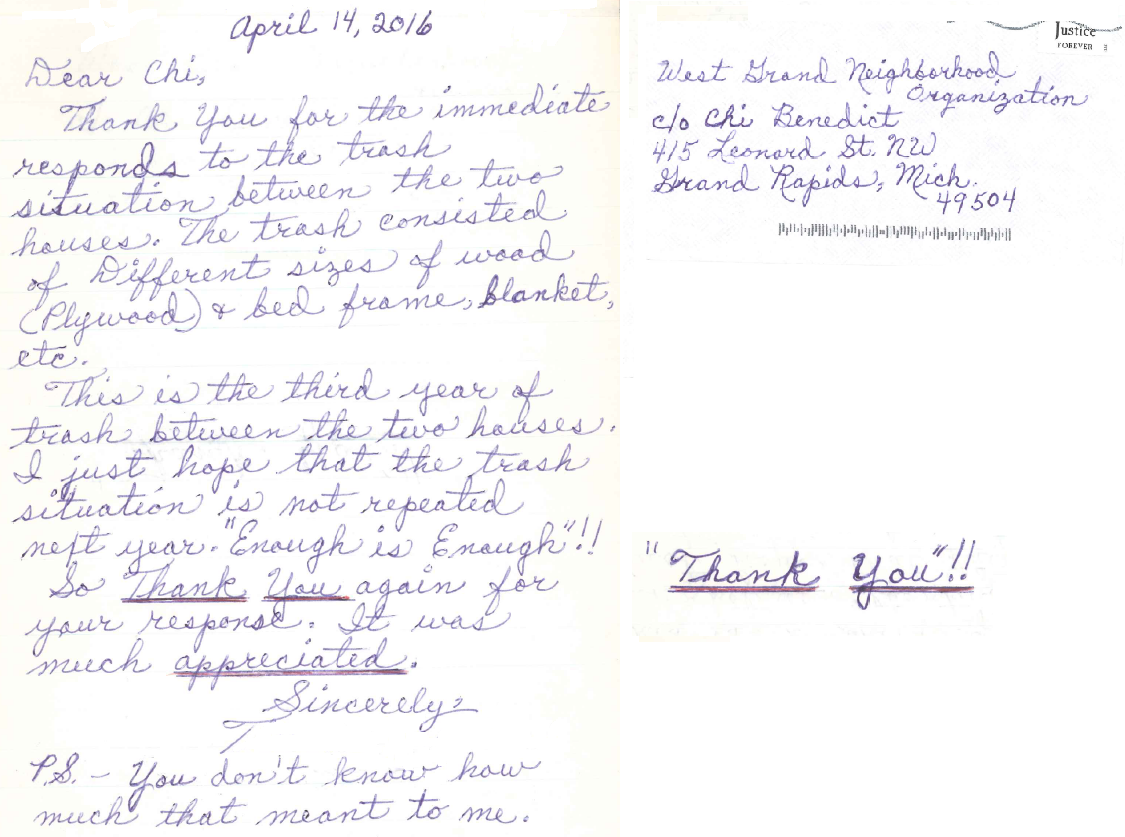 April 14, 2016
Dear Chi,
Thank You for the immediate
responds to the trash
situation between the two
houses. The trash consisted
of Different sizes of wood
(Plywood) & bed frame, blanket,
etc.
This is the third year of
trash between the two houses.
I just hope that the trash
situation is not repeated
next year. "Enough is Enough"!!
So Thank You again for
your response. It was
much appreciated.
Sincerely,
P.S. – You don't know how
much that meant to me.
Justice
FOREVER
West Grand Neighborhood
Organization
c/o Chi Benedict
415 Leonard St. NW
Grand Rapids, Mich.
49504
"Thank You"!!